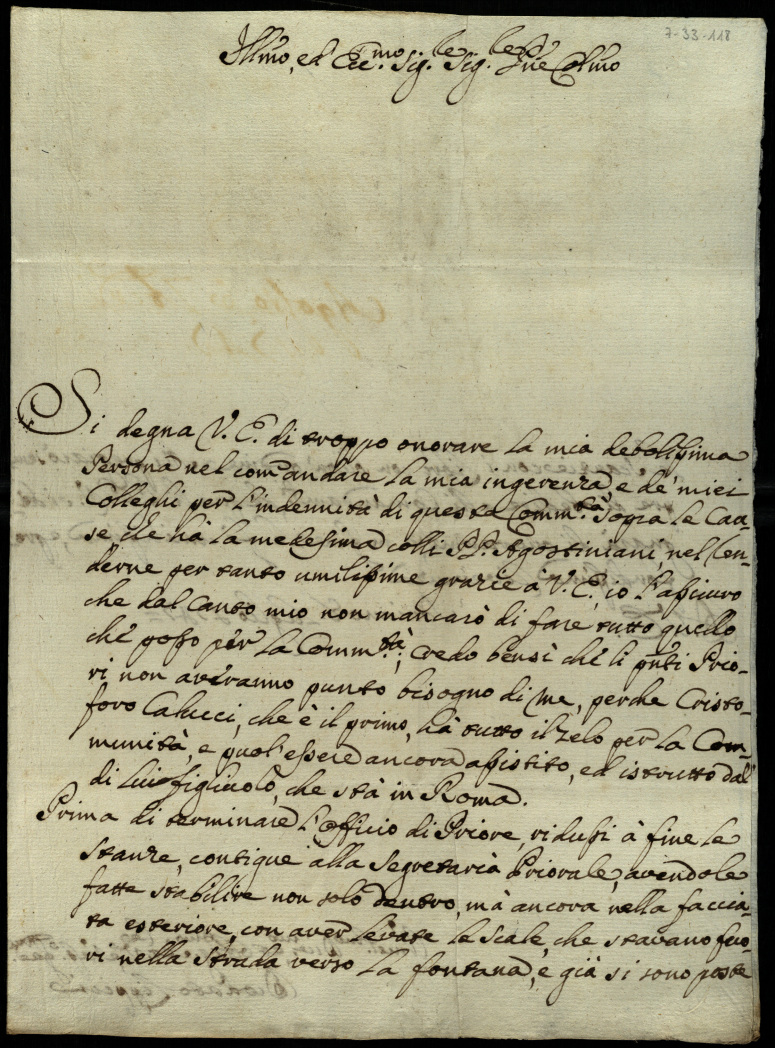 7-33-118
Illmo, ed Ecc.mo Sig.re Sig.re Pne Colmo
Si degna V. E. di troppo onorare la mia debolissima
Persona nel comandare la mia ingerenza e de' miei
Colleghi per l'indennità di questa Comm.tà sopra le Cau-
se che hà la medesima colli PP. Agostiniani, nel ren-
derne per tanto umilissime grazie à V. E., io l'assicuro
che dal canto mio non mancarò di fare tutto quello
che posso per la Comm.tà; credo bensì che li pnti Prio-
ri non averanno punto bisogno di me, perche Cristo-
foro Calucci, che è il primo, hà tutto il zelo per la Com-
munità, e puol'essere ancora assistito, ed istrutto dal
di lui figliuolo, che stà in Roma.
Prima di terminare l'Officio di Priore, ridussi à fine le
stanze, contigue alla Segretaria Priorale, avendole
fatte stabilire non solo dentro, mà ancora nella faccia-
ta esteriore, con aver levate le scale, che stavano fuo-
ri nella strada verso la fontana, e già si sono poste